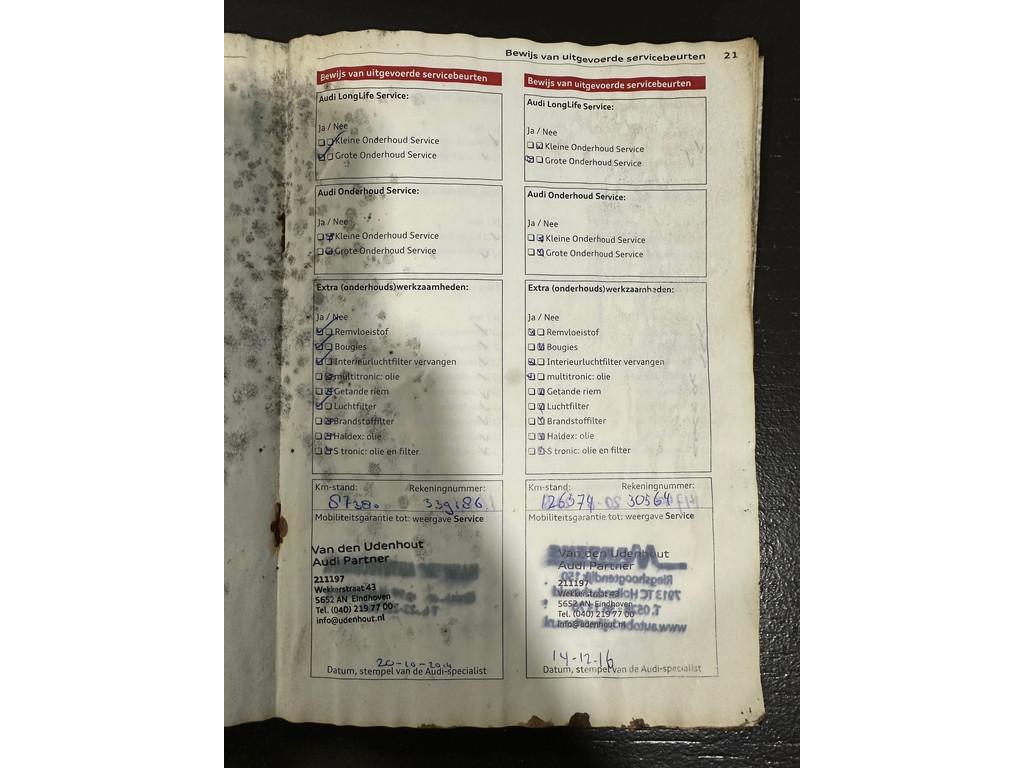 Bewijs van uitgevoerde servicebeurten 21
Bewijs van uitgevoerde servicebeurten
Audi LongLife Service:
Ja / Nee
Kleine Onderhoud Service
Grote Onderhoud Service
Audi Onderhoud Service:
Ja / Nee
Kleine Onderhoud Service
Grote Onderhoud Service
Extra (onderhouds)werkzaamheden:
Ja / Nee
Remvloeistof
Bougies
Interieurluchtfilter vervangen
multitronic: olie
Getande riem
Luchtfilter
Brandstoffilter
Haldex: olie
S tronic: olie en filter
Km-stand: Rekeningnummer:
87380 339186
Mobiliteitsgarantie tot: weergave Service
Van den Udenhout
Audi Partner
211197
Wekkerstraat 43
5652 AN Eindhoven
Tel. (040) 219 77 00
info@udenhout.nl
20-10-2014
Datum, stempel van de Audi-specialist
Bewijs van uitgevoerde servicebeurten
Audi LongLife Service:
Ja / Nee
Kleine Onderhoud Service
Grote Onderhoud Service
Audi Onderhoud Service:
Ja / Nee
Kleine Onderhoud Service
Grote Onderhoud Service
Extra (onderhouds)werkzaamheden:
Ja / Nee
Remvloeistof
Bougies
Interieurluchtfilter vervangen
multitronic: olie
Getande riem
Luchtfilter
Brandstoffilter
Haldex: olie
S tronic: olie en filter
Km-stand: Rekeningnummer:
126374 30564
Mobiliteitsgarantie tot: weergave Service
Van den Udenhout
Audi Partner
211197
Wekkerstraat 43
5652 AN Eindhoven
Tel. (040) 219 77 00
info@udenhout.nl
14-12-16
Datum, stempel van de Audi-specialist